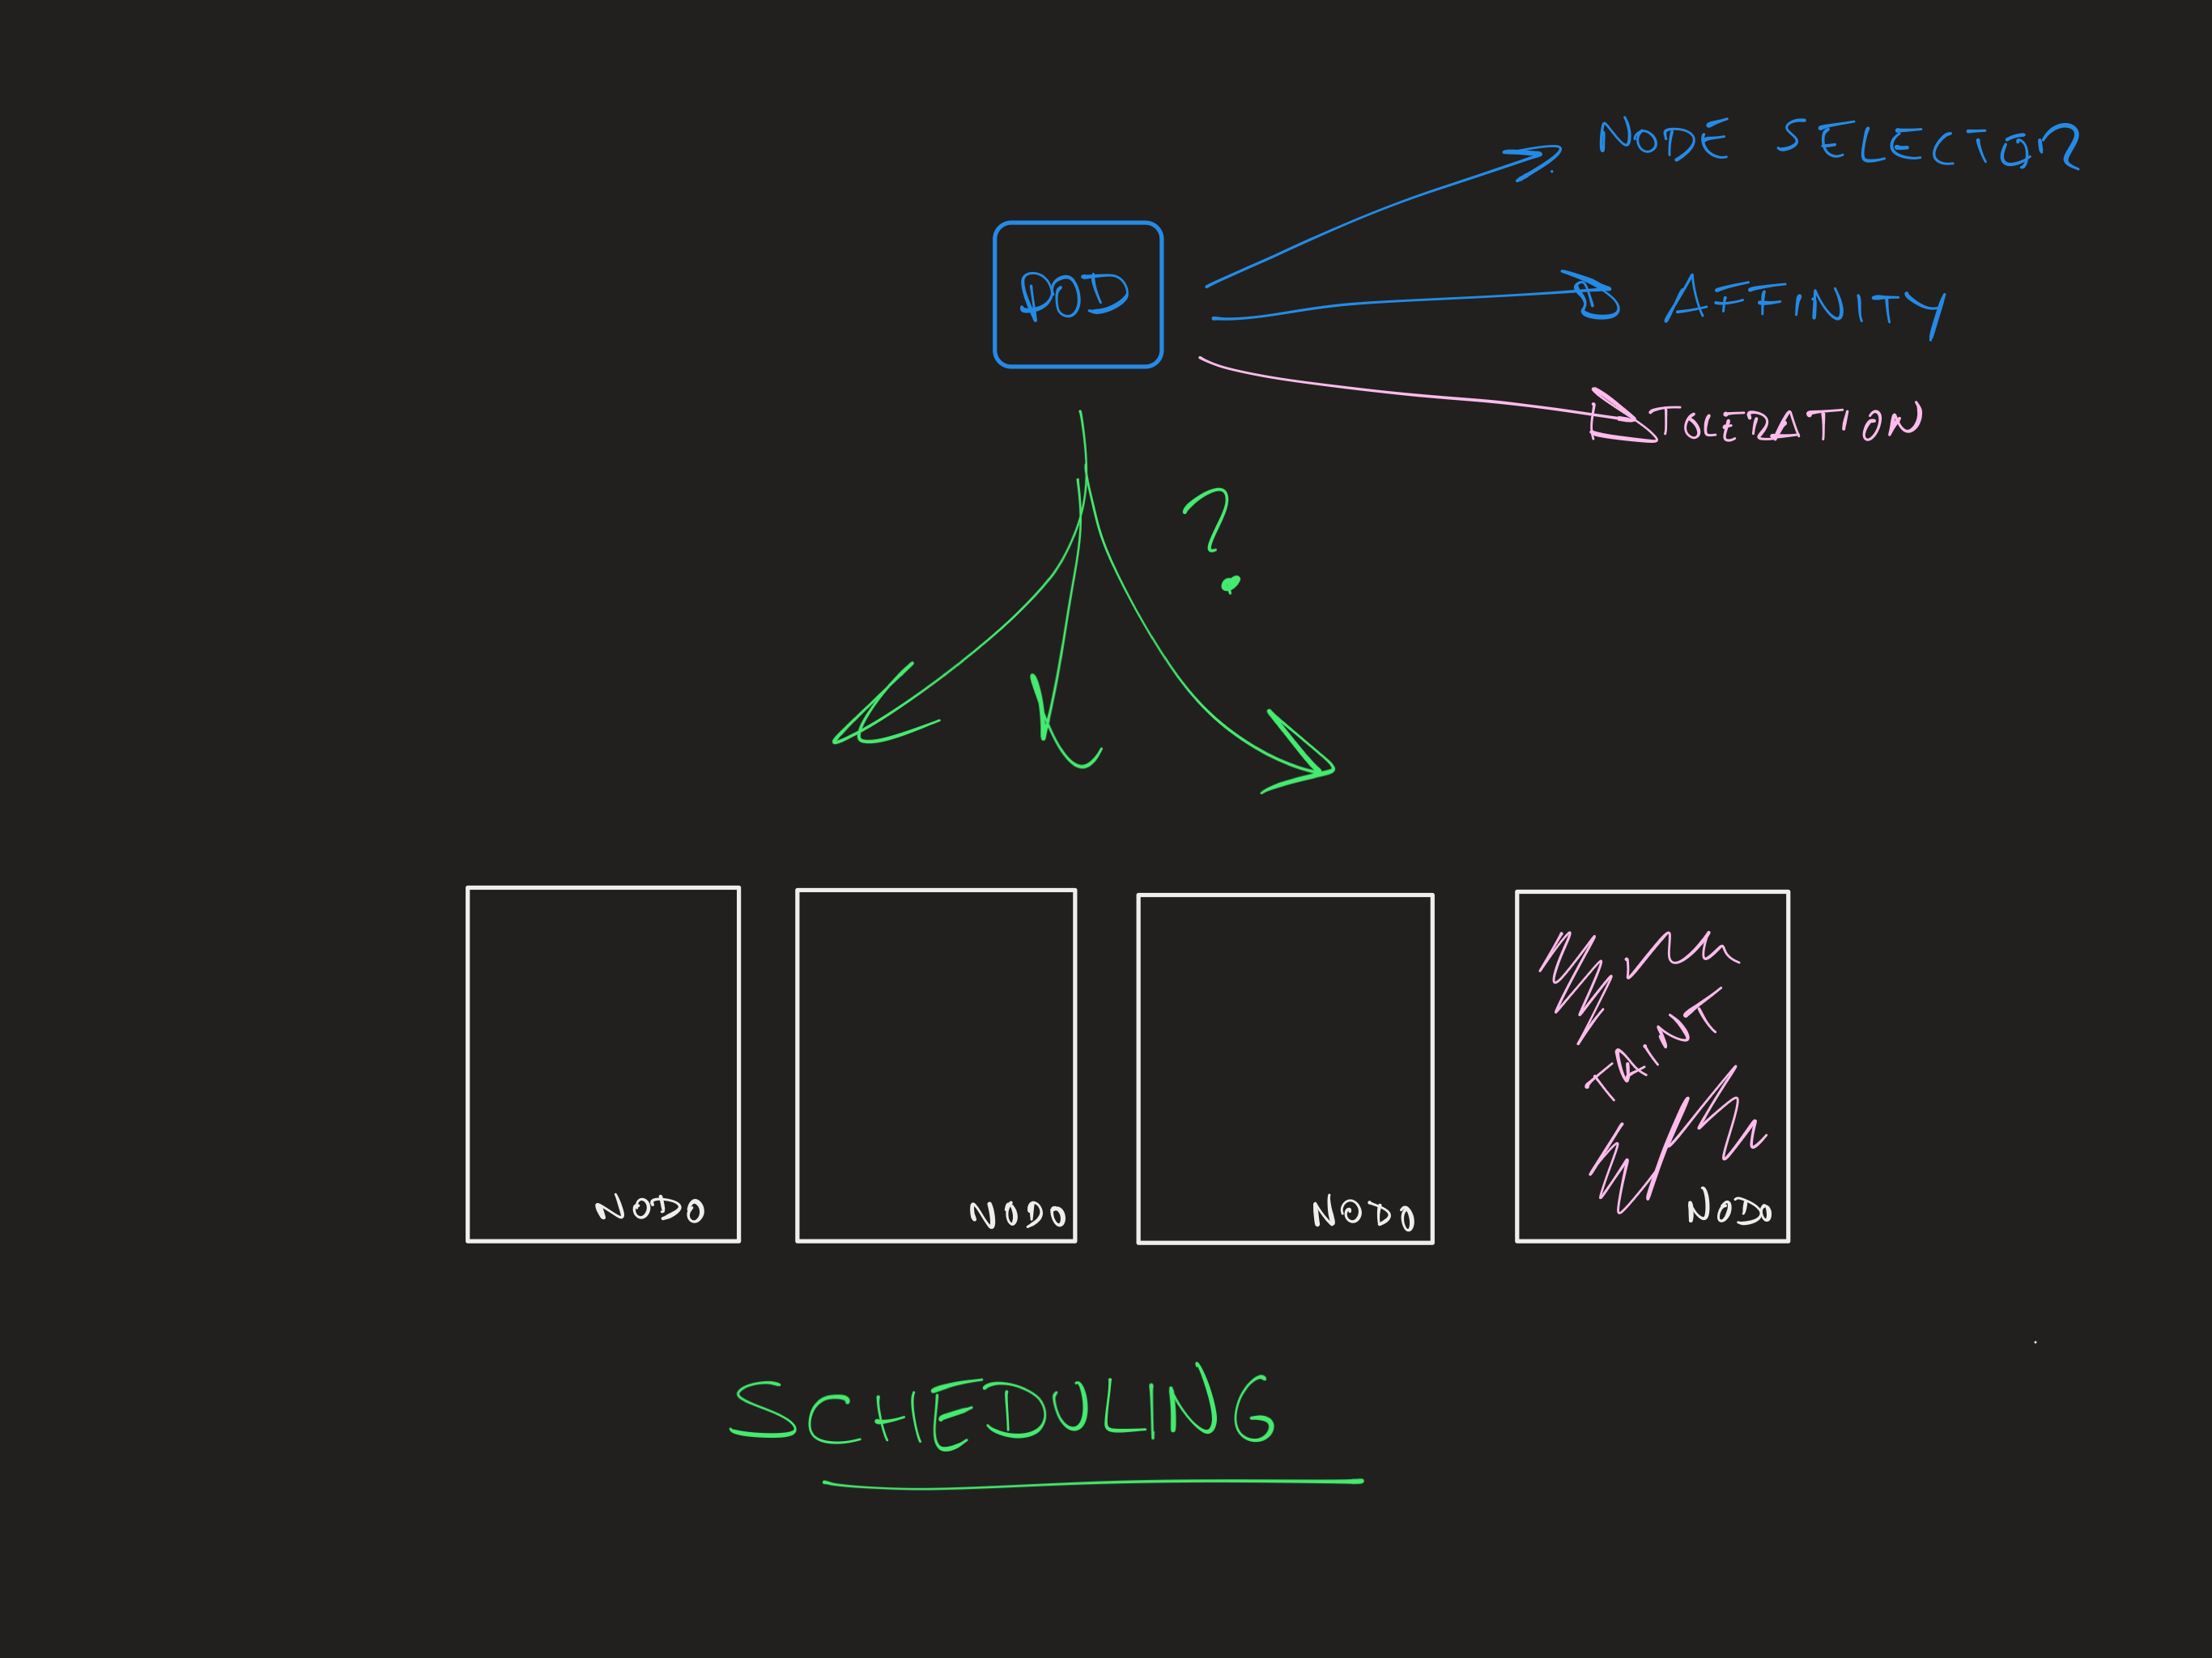 NODE SELECTOR
POD
AFFINITY
TOLERATION
?
TAINT
NODO
NODO
NODO
NODO
SCHEDULING